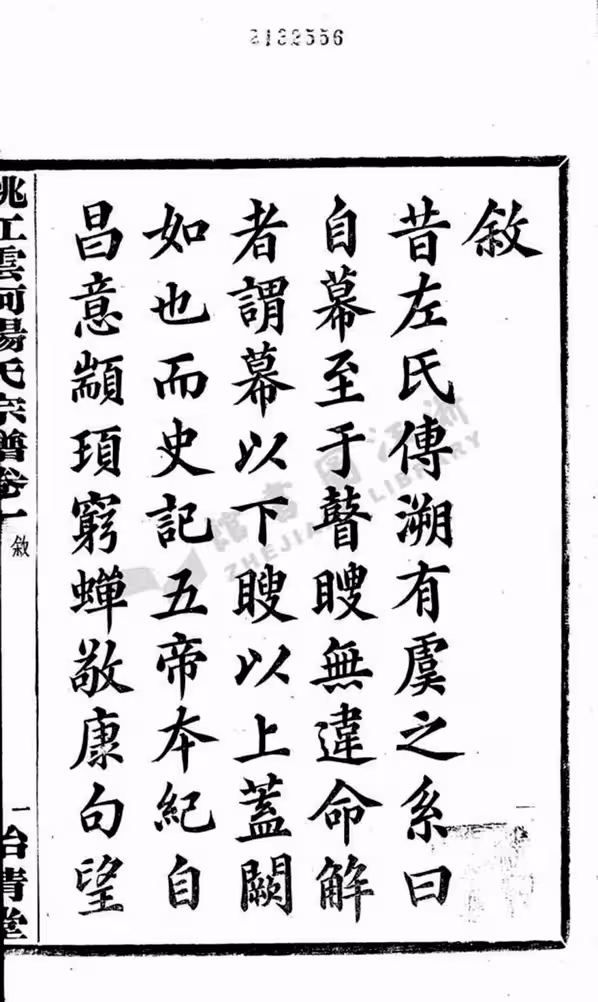 2132556
敘
昔左氏傳溯有虞之系曰
自幕至于瞽瞍無違命解
者謂幕以下瞍以上蓋闕
如也而史記五帝本紀自
昌意顓頊窮蟬敬康句望
姚江雲柯楊氏宗譜卷一
敘
一
浙江圖書館
ZHEJIANG LIBRARY